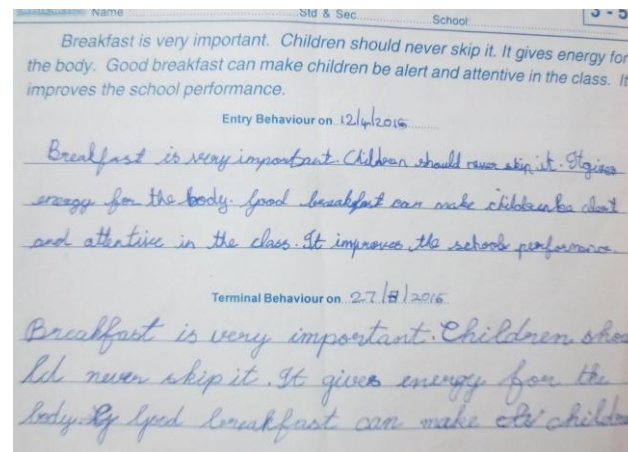 Name Std & Sec. School 3 - 5
Breakfast is very important. Children should never skip it. It gives energy for
the body. Good breakfast can make children be alert and attentive in the class. It
improves the school performance.
Entry Behaviour on 12/4/2016
Breakfast is very important. Children should never skip it. It gives
energy for the body. Good breakfast can make children be alert
and attentive in the class. It improves the school performance.
Terminal Behaviour on 27/8/2016
Breakfast is very important. Children shou
ld never skip it. It gives energy for the
body. Good breakfast can make childre